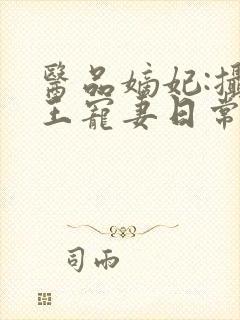 醫品嫡妃:攝
王寵妻日常
司雨